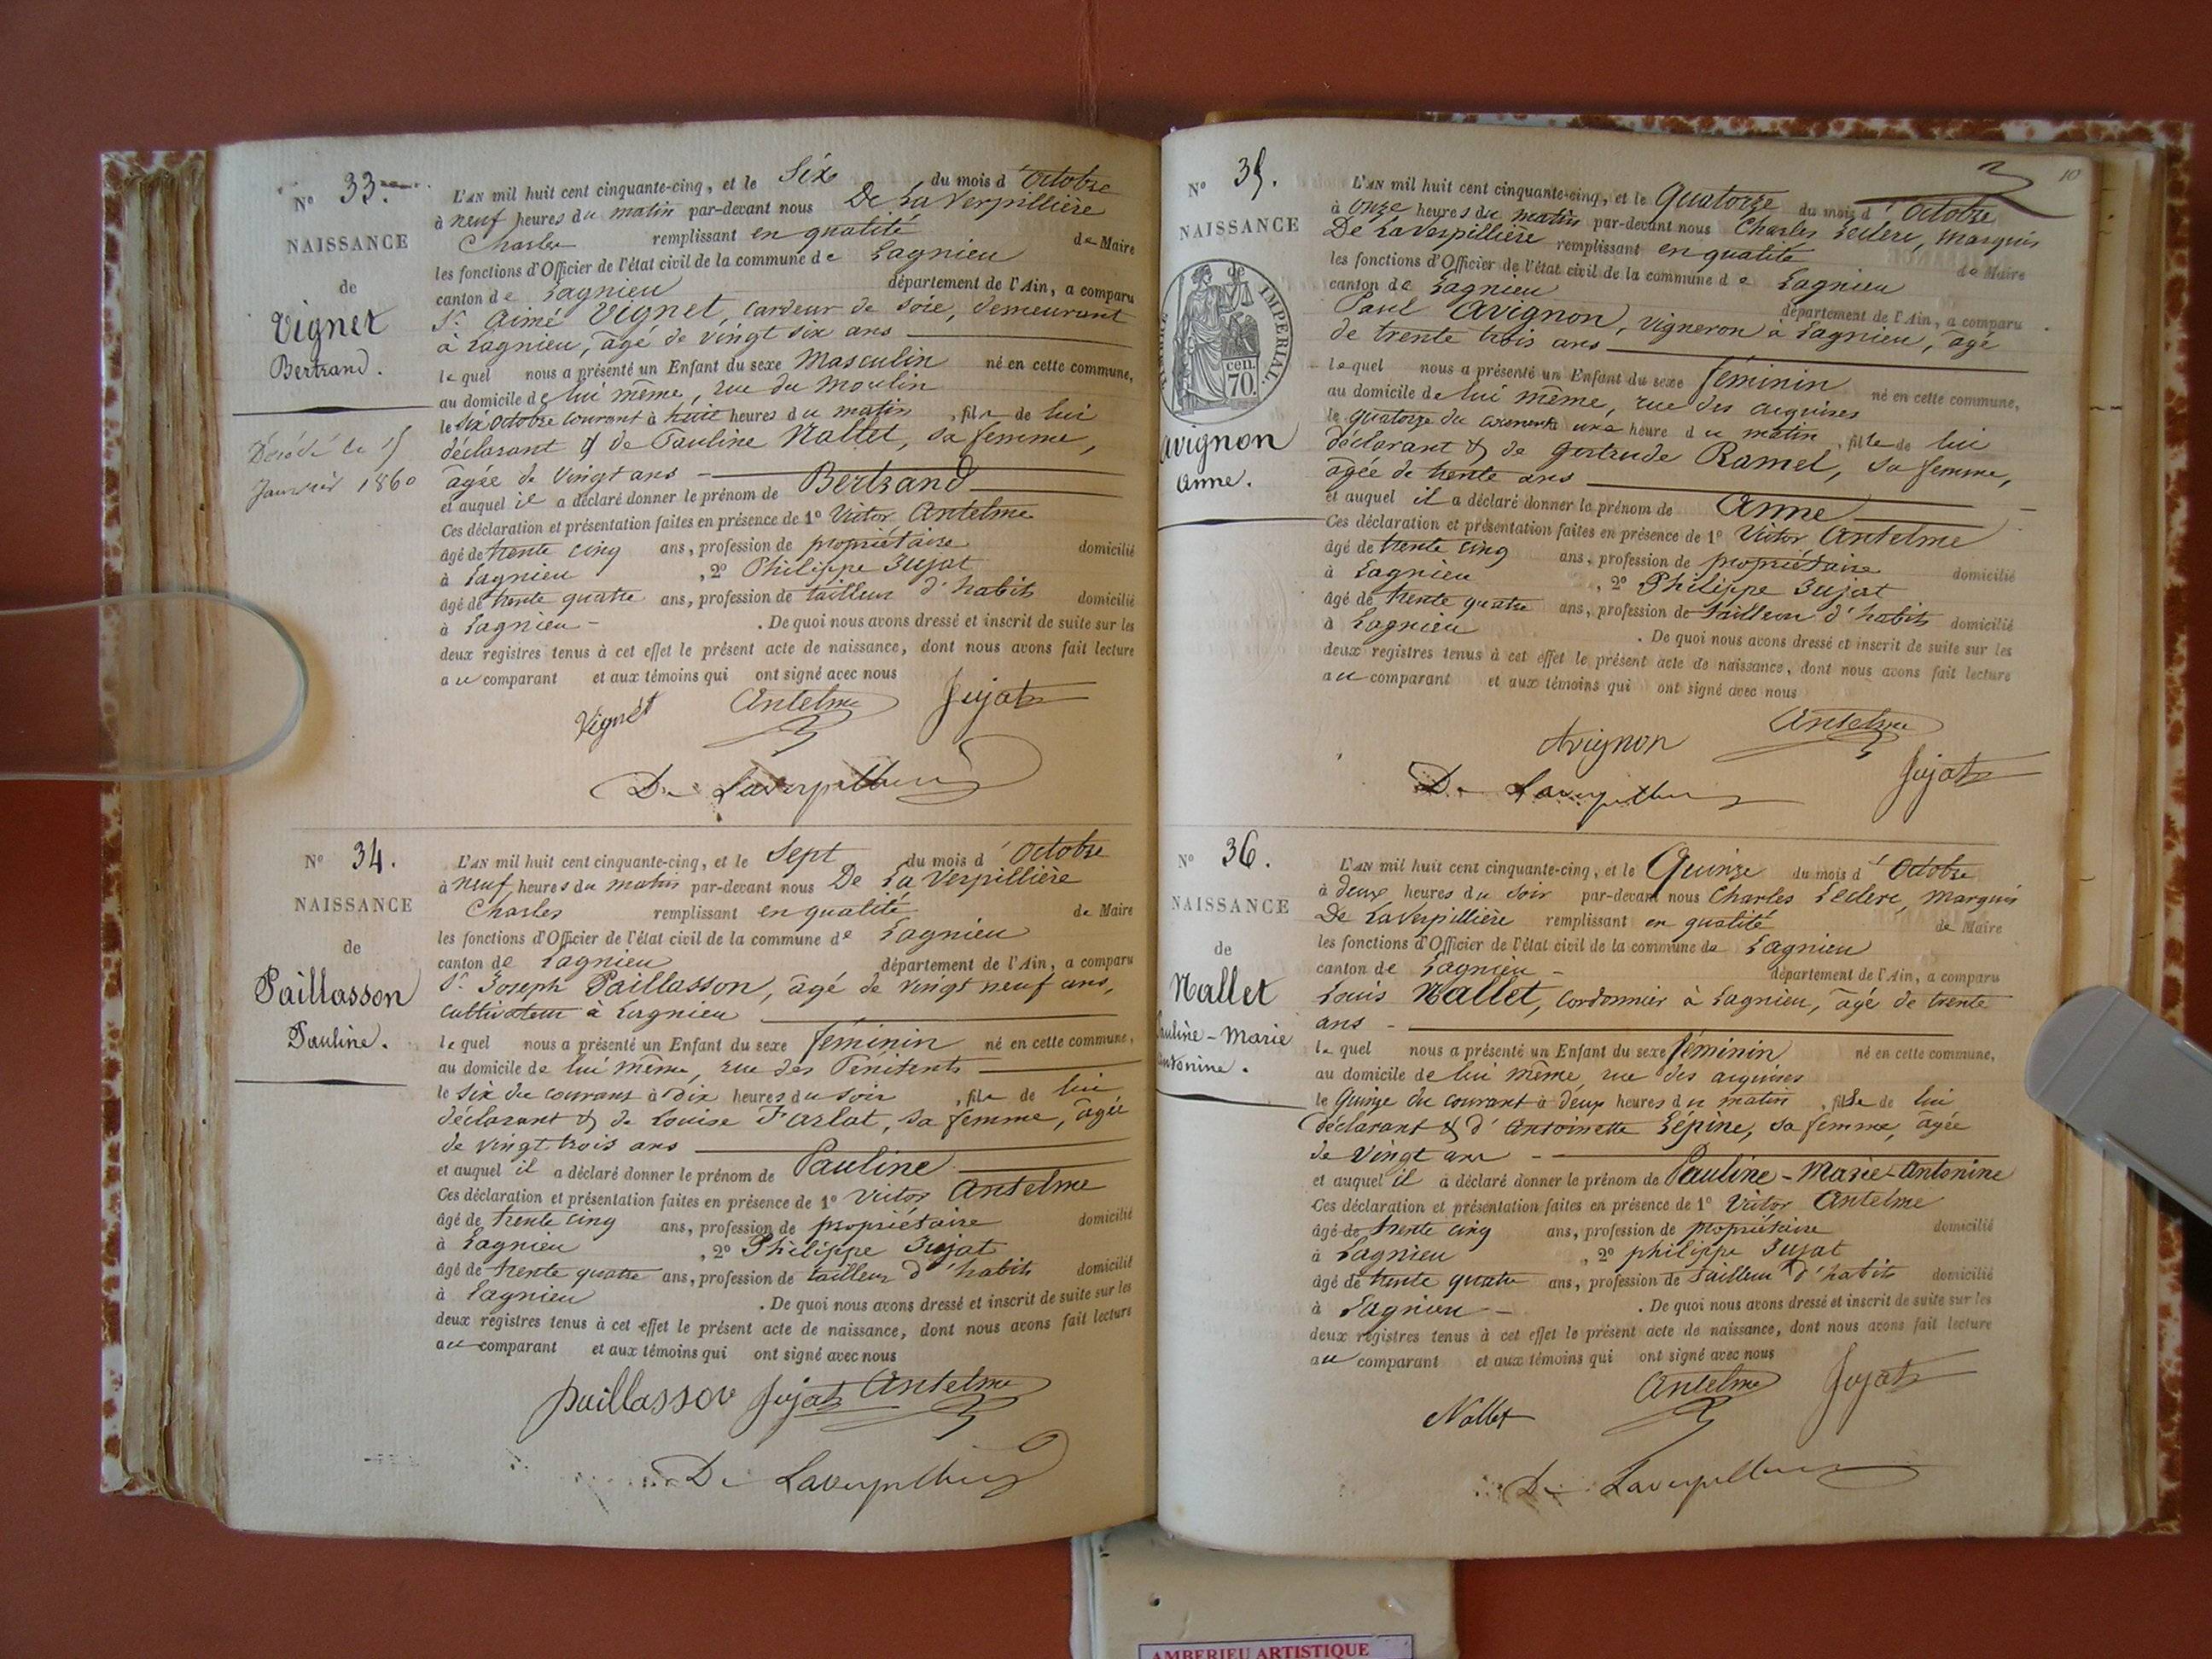 N° 33.
NAISSANCE
de
Vignet
Bertrand.
Décédé le 15
Janvier 1860
L'AN mil huit cent cinquante-cinq, et le Six du mois d'Octobre
à neuf heures du matin par-devant nous De LaVerpillière
Charles remplissant en qualité de Maire
les fonctions d'Officier de l'état civil de la commune de Lagnieu
canton de Lagnieu département de l'Ain, a comparu
Sr. Aimé Vignet, cardeur de soie, demeurant
à Lagnieu, âgé de vingt six ans
lequel nous a présenté un Enfant du sexe Masculin né en cette commune,
au domicile de lui même, rue du Moulin
le Six Octobre courant à huit heures du matin, fils de lui
déclarant & de Pauline Nallet, sa femme,
âgée de Vingt ans
et auquel il a déclaré donner le prénom de Bertrand
Ces déclaration et présentation faites en présence de 1° Victor Antelme
âgé de trente cinq ans, profession de propriétaire domicilié
à Lagnieu, 2° Philippe Jujat
âgé de trente quatre ans, profession de tailleur d'habits domicilié
à Lagnieu. De quoi nous avons dressé et inscrit de suite sur les
deux registres tenus à cet effet le présent acte de naissance, dont nous avons fait lecture
au comparant et aux témoins qui ont signé avec nous
Vignet Antelme Jujat
De Laverpillière
N° 34.
NAISSANCE
de
Paillasson
Pauline.
L'AN mil huit cent cinquante-cinq, et le Sept du mois d'Octobre
à neuf heures du matin par-devant nous De LaVerpillière
Charles remplissant en qualité de Maire
les fonctions d'Officier de l'état civil de la commune de Lagnieu
canton de Lagnieu département de l'Ain, a comparu
Sr. Joseph Paillasson, âgé de vingt neuf ans,
cultivateur à Lagnieu
lequel nous a présenté un Enfant du sexe féminin né en cette commune,
au domicile de lui même, rue des Pénitents
le six du courant à dix heures du soir, file de lui
déclarant & de Louise Farlat, sa femme, âgée
de vingt trois ans
et auquel il a déclaré donner le prénom de Pauline
Ces déclaration et présentation faites en présence de 1° Victor Antelme
âgé de trente cinq ans, profession de propriétaire domicilié
à Lagnieu, 2° Philippe Jujat
âgé de trente quatre ans, profession de tailleur d'habits domicilié
à Lagnieu. De quoi nous avons dressé et inscrit de suite sur les
deux registres tenus à cet effet le présent acte de naissance, dont nous avons fait lecture
au comparant et aux témoins qui ont signé avec nous
paillasson Jujat Antelme
De Laverpillière
10
N° 35.
NAISSANCE
de
TIMBRE IMPERIAL.
cen. 70.
Avignon
Anne.
L'AN mil huit cent cinquante-cinq, et le Quatorze du mois d'Octobre
à onze heures du matin par-devant nous Charles Leclerc, Marquis
De LaVerpillière remplissant en qualité de Maire
les fonctions d'Officier de l'état civil de la commune de Lagnieu
canton de Lagnieu département de l'Ain, a comparu
Paul Avignon, vigneron à Lagnieu, âgé
de trente trois ans
lequel nous a présenté un Enfant du sexe féminin né en cette commune,
au domicile de lui même, rue des aiguises
le quatorze du courant à une heure du matin, fille de lui
déclarant & de Gertrude Ramel, sa femme,
âgée de trente ans
et auquel il a déclaré donner le prénom de Anne
Ces déclaration et présentation faites en présence de 1° Victor Antelme
âgé de trente cinq ans, profession de propriétaire domicilié
à Lagnieu, 2° Philippe Jujat
âgé de trente quatre ans, profession de tailleur d'habits domicilié
à Lagnieu. De quoi nous avons dressé et inscrit de suite sur les
deux registres tenus à cet effet le présent acte de naissance, dont nous avons fait lecture
au comparant et aux témoins qui ont signé avec nous
Avignon Antelme
De Laverpillière Jujat
N° 36.
NAISSANCE
de
Nallet
Pauline-Marie
Antonine.
L'AN mil huit cent cinquante-cinq, et le Quinze du mois d'Octobre
à deux heures du soir par-devant nous Charles Leclerc, Marquis
De LaVerpillière remplissant en qualité de Maire
les fonctions d'Officier de l'état civil de la commune de Lagnieu
canton de Lagnieu département de l'Ain, a comparu
Louis Nallet, cordonnier à Lagnieu, âgé de trente
ans
lequel nous a présenté un Enfant du sexe féminin né en cette commune,
au domicile de lui même, rue des aiguises
le Quinze du courant à deux heures du matin, fille de lui
déclarant & d'Antoinette Lépine, sa femme, âgée
de Vingt ans
et auquel il a déclaré donner le prénom de Pauline-Marie-Antonine
Ces déclaration et présentation faites en présence de 1° Victor Antelme
âgé de trente cinq ans, profession de propriétaire domicilié
à Lagnieu, 2° philippe Jujat
âgé de trente quatre ans, profession de tailleur d'habits domicilié
à Lagnieu. De quoi nous avons dressé et inscrit de suite sur les
deux registres tenus à cet effet le présent acte de naissance, dont nous avons fait lecture
au comparant et aux témoins qui ont signé avec nous
Nallet Antelme Jujat
De Laverpillière
AMBERIEU ARTISTIQUE